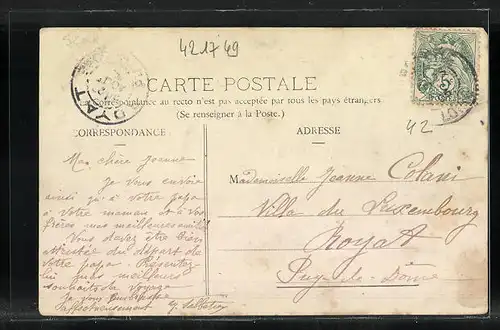 421749
CARTE POSTALE
La Correspondance au recto n'est pas acceptée par tous les pays étrangers
(Se renseigner à la Poste.)
42
CORRESPONDANCE
ADRESSE
Ma chère Jeanne
Je vous envoie
ainsi qu'à votre papa
à votre maman et à vos
frères mes meilleures amitiés
Vous devez être bien
attristée du départ de
votre papa. Présentez-
lui mes meilleurs
souhaits de voyage
Je vous embrasse
affectueusement
Mademoiselle Jeanne Colani
Villa du Luxembourg
Royat
Puy-de-Dôme
ROYAT
5